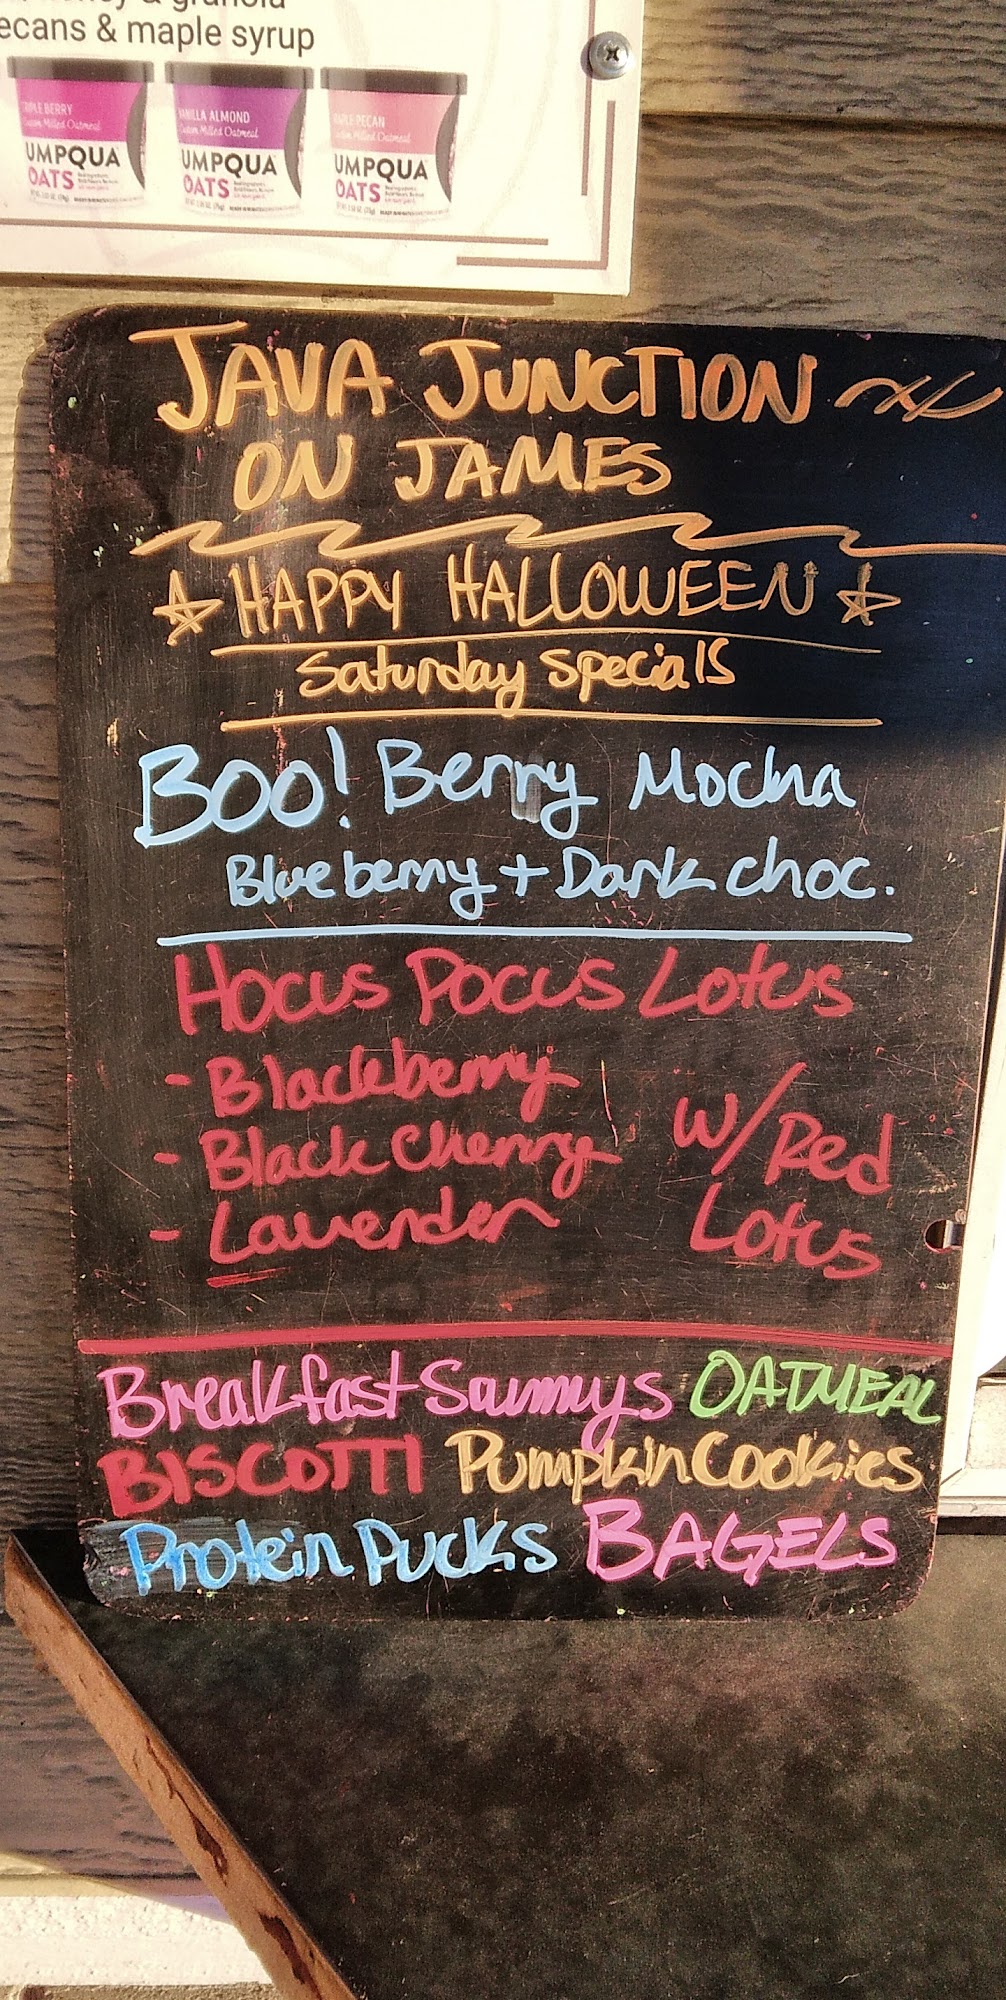 & granola
ecans & maple syrup
VANILLA ALMOND
Custom Milled Oatmeal
UMPQUA
OATS
UMPQUA
OATS
UMPQUA
OATS
JAVA JUNCTION
ON JAMES
HAPPY HALLOWEEN
Saturday Specials
BOO! Berry Mocha
Blueberry + Dark choc.
Hocus Pocus Lotus
- Blackberry
- Black Cherry
- Lavender
w/ Red
Lotus
Breakfast Sammys OATMEAL
BISCOTTI Pumpkin Cookies
Protein Pucks BAGELS